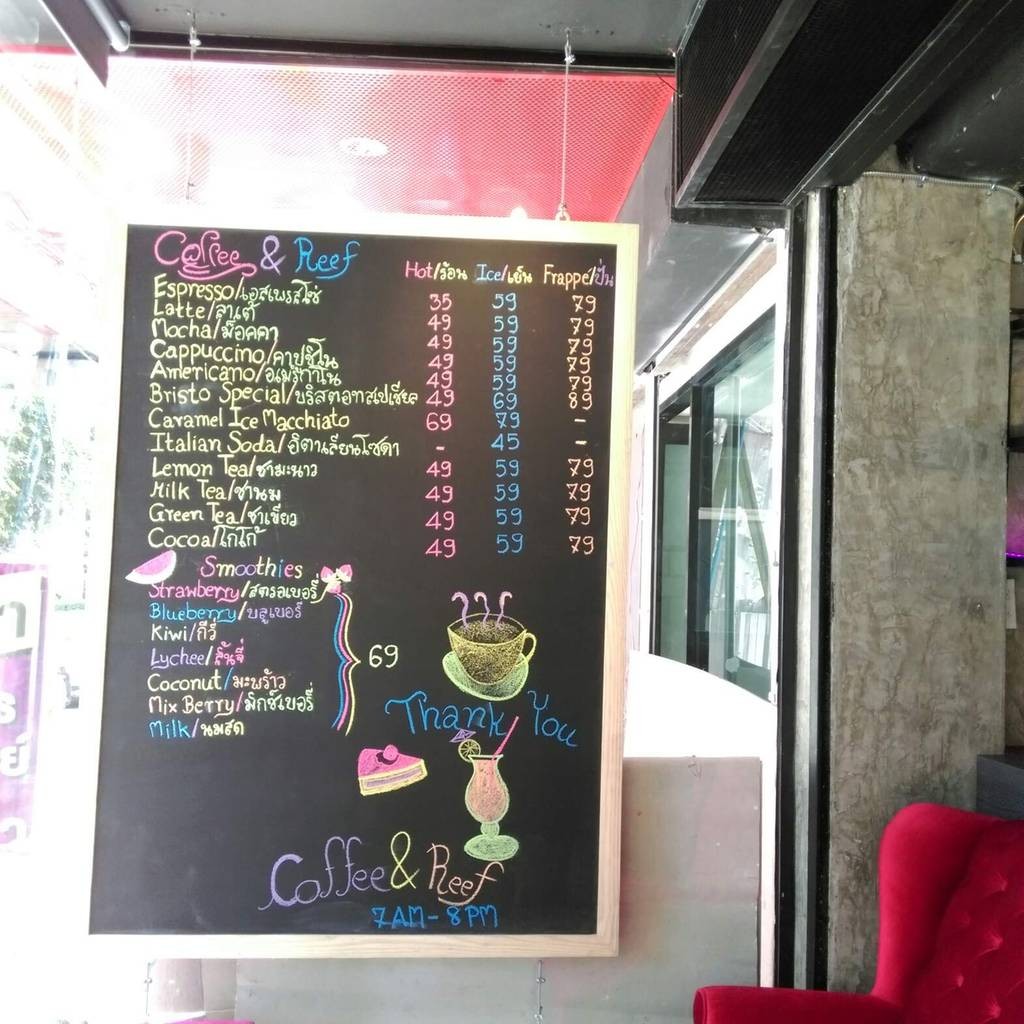 Coffee & Reef
Hot/ร้อน Ice/เย็น Frappe/ปั่น
Espresso/เอสเพรสโซ่ 35 59 79
Latte/ลาเต้ 49 59 79
Mocha/ม็อคคา 49 59 79
Cappuccino/คาปูชิโน 49 59 79
Americano/อเมริกาโน 49 59 79
Bristo Special/บริสตอทสเปเชียล 49 69 89
Caramel Ice Macchiato 69 79 -
Italian Soda/อิตาเลียนโซดา - 45 -
Lemon Tea/ชามะนาว 49 59 79
Milk Tea/ชานม 49 59 79
Green Tea/ชาเขียว 49 59 79
Cocoa/โกโก้ 49 59 79
Smoothies
Strawberry/สตรอเบอรี่
Blueberry/บลูเบอรี่
Kiwi/กีวี่
Lychee/ลิ้นจี่
69
Coconut/มะพร้าว
Mix Berry/มิกซ์เบอรี่
Milk/นมสด
Thank You
Coffee & Reef
7AM-8PM